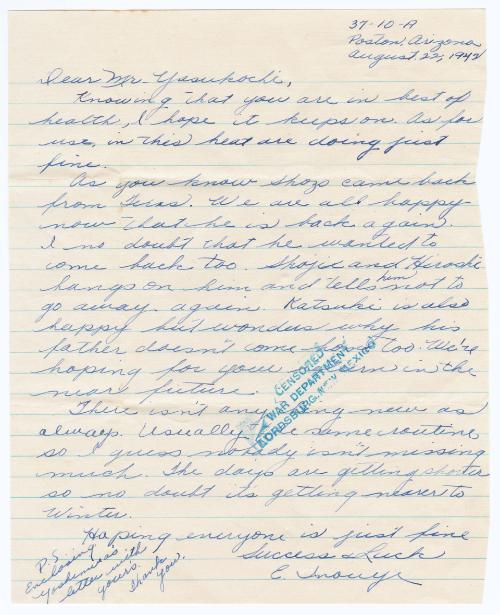 37-10-A
Poston, Arizona
August 22, 1942
Dear Mr. Yasukochi,
Knowing that you are in best of
health, I hope it keeps on. As for
use, in this heat are doing just
fine.
As you know Shozo came back
from Texas. We are all happy
now that he is back again.
I no doubt that he wanted to
come back too. Shojie and Hiroshi
hangs on him and tells him not to
go away again. Katsuki is also
happy but wonders why his
father doesn't come too. We're
hoping for your in the
near future.
There isn't anything new as
always. Usually same routine
so I guess nobody isn't missing
much. The days are getting shorter
so no doubt its getting nearer to
Winter.
Hoping everyone is just fine
Success & Luck
E. Inouye
P.S.
Enclosing
Yoshimi's
letter with
yours.
Thank
you.
CENSORED
WAR DEPARTMENT
LORDSBURG, NEW MEXICO